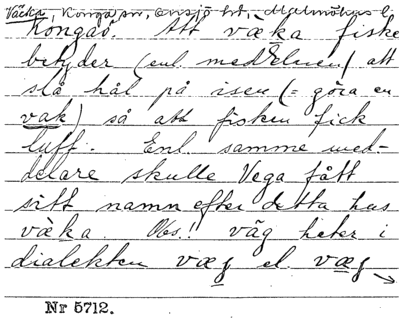 Väcka, Konga sn, Onsjö hd, Malmöhus l.
Kongaö. Att væka fiske
betyder (enl. meddelaren) att
slå hål på isen (= göra en
vak) så att fisken fick
luff. Enl. samme med-
delare skulle Vega fått
sitt namn efter detta hus
væka. Obs.! väg heter i
dialekten væg el. væg →
Nr 5712.